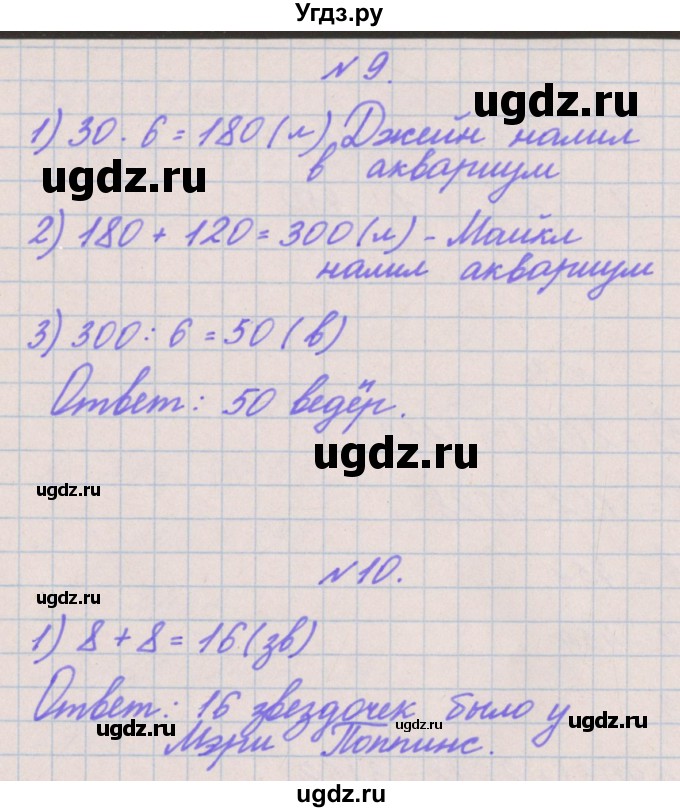 Угдз.ру
№ 9.
ugdz.ru
1) 30 · 6 = 180 (л) Джейн налил
в аквариум
ugdz.ru
2) 180 + 120 = 300 (л) - Майкл
налил аквариум
3) 300 : 6 = 50 (в)
Ответ: 50 ведёр.
ugdz.ru
ugdz.ru
№ 10.
ugdz.ru
1) 8 + 8 = 16 (зв)
Ответ: 16 звездочек было у
ugdz.ru ugdz.ru ugdz.ru
Мэри Поппинс.
ugdz.ru